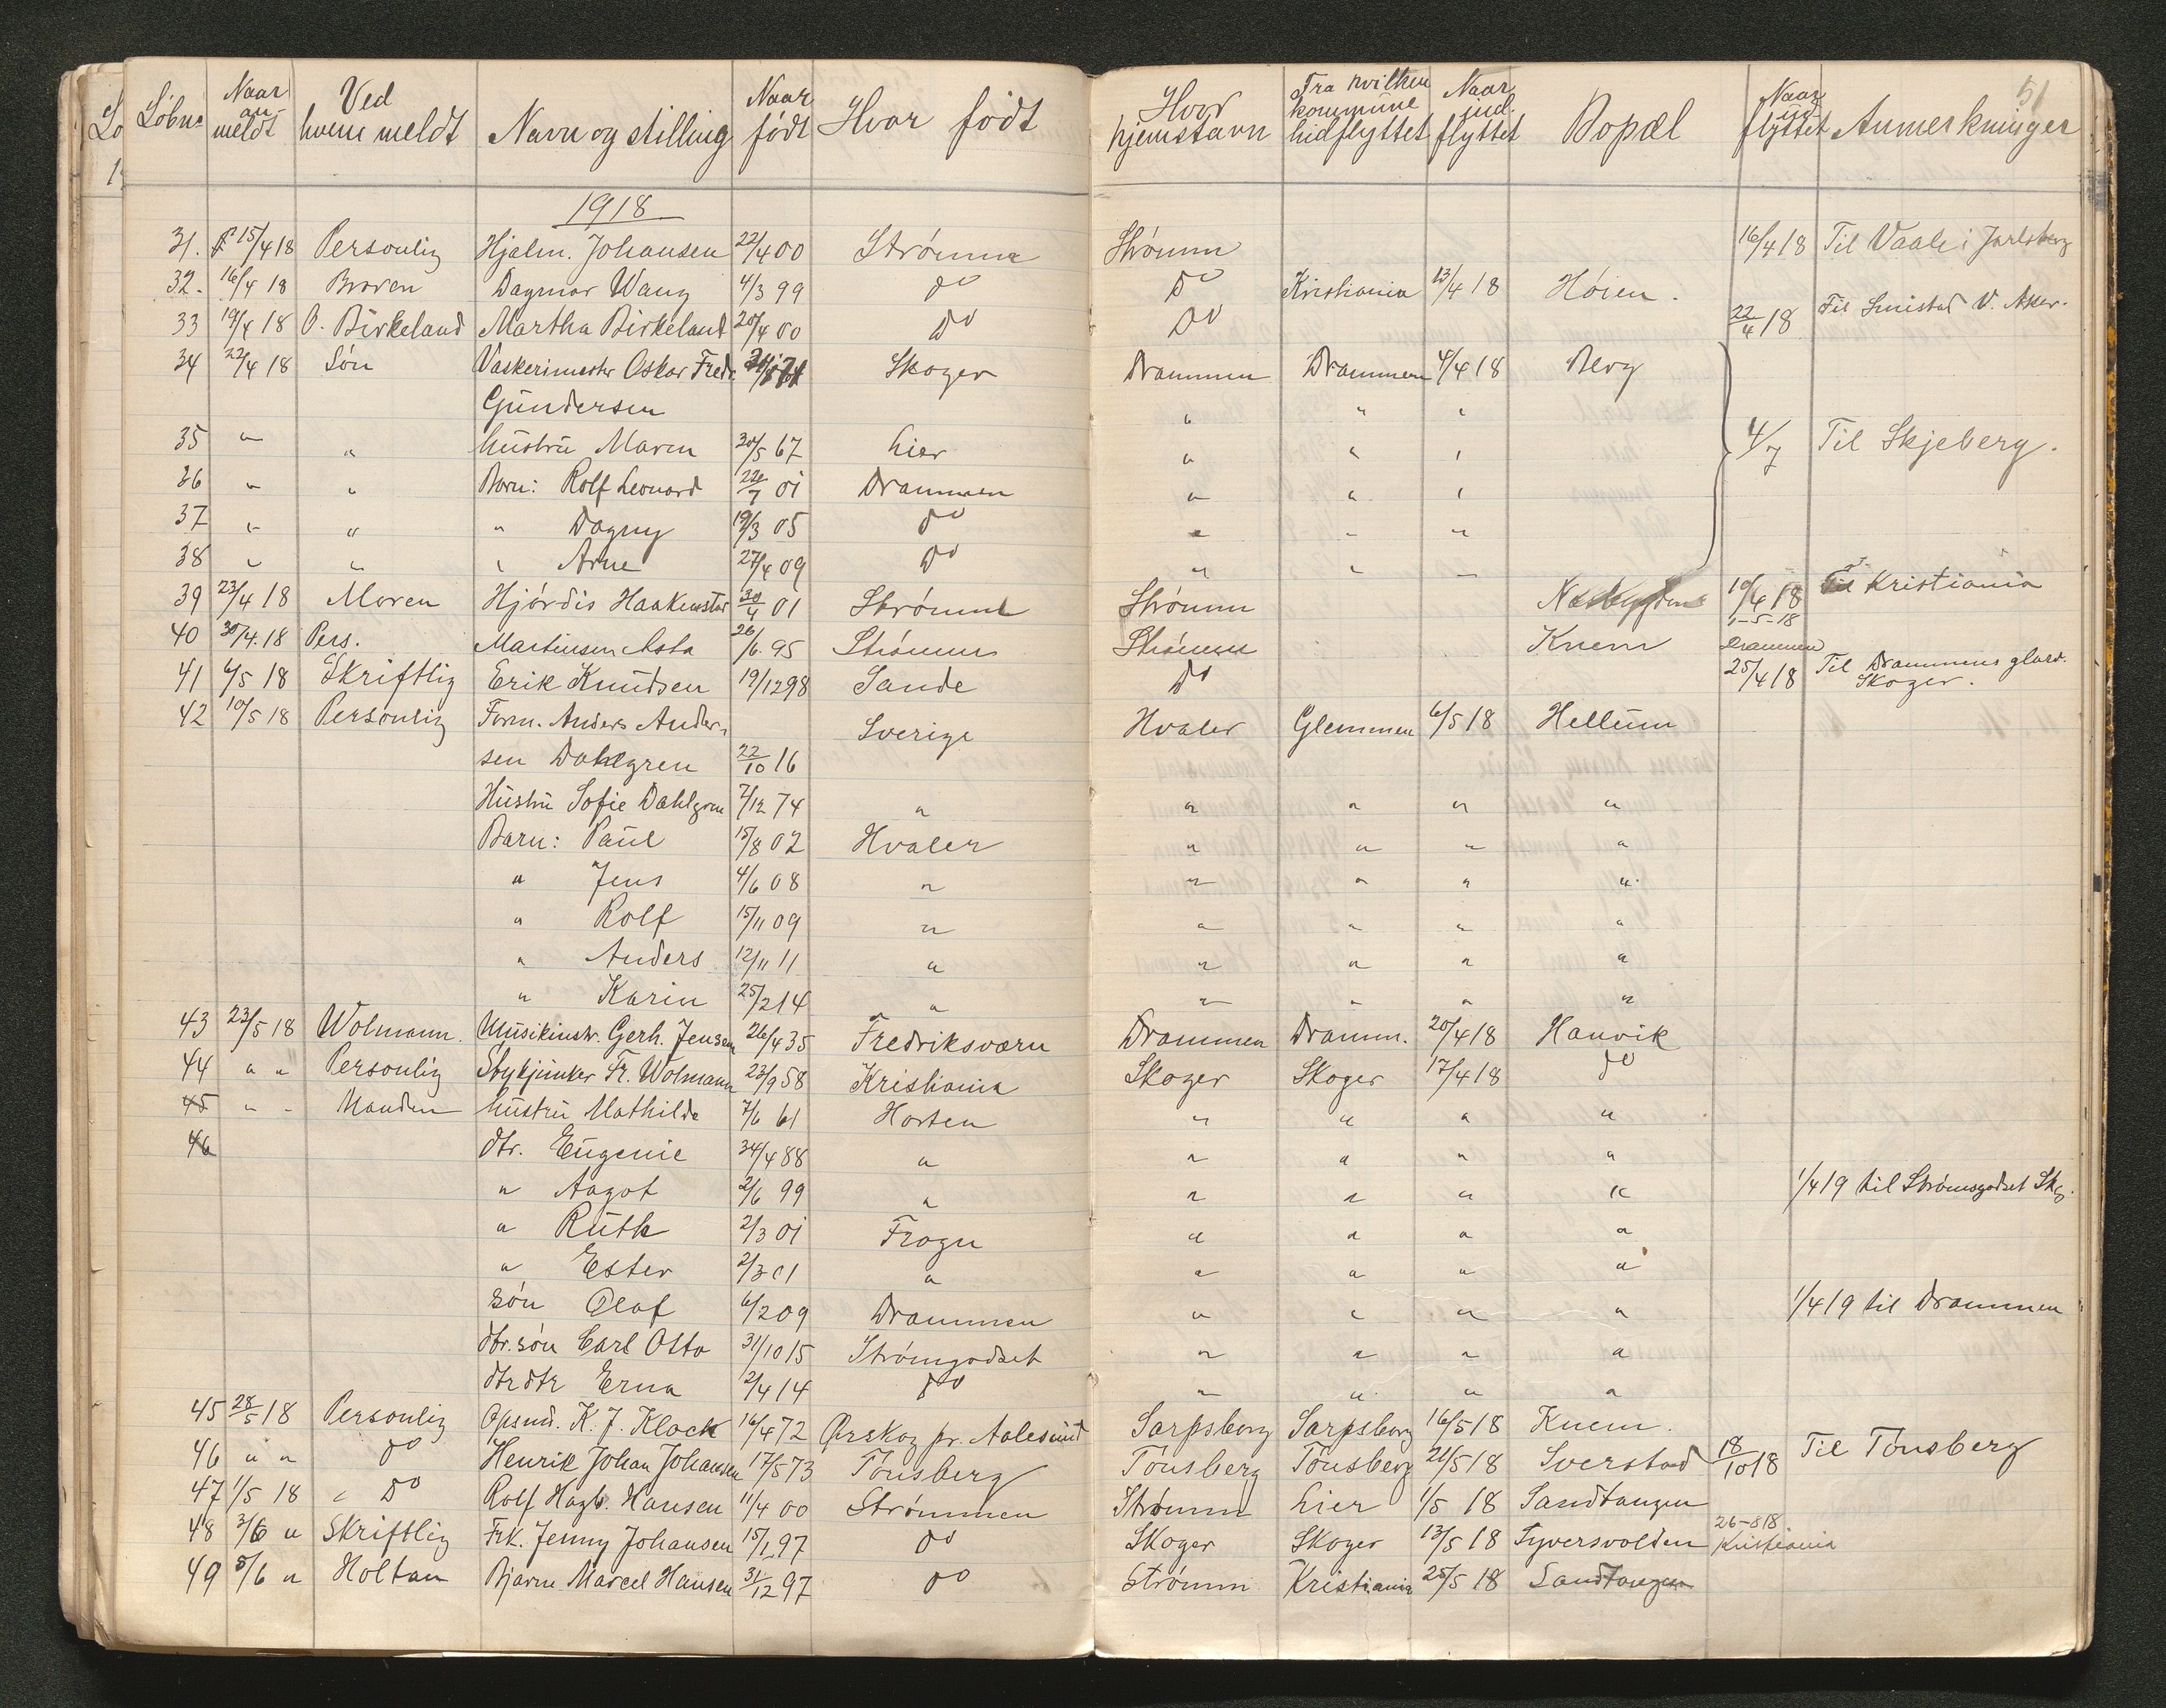 Löbnr Naar anmeldt Ved hvem meldt Navn og stilling Naar födt Hvor födt Hvor hjemstavn Fra hvilken kommune hidflyttet Naar indflyttet Bopæl Naar utflyttet Anmerkninger 51
1918
31. 15/4 18 Personlig Hjalm. Johansen 22/4 00 Strömm Strömm 16/4 18 Til Vaale i Jarlsberg
32. 16/4 18 Broren Dagmar Wang 4/3 99 do Do Kristiania 13/4 18 Höien.
33 19/4 18 O. Birkeland Martha Birkeland 20/4 00 Do Do 22/4 18 Til V. Aker.
34 22/4 18 Sön Vaskerimester Oskar Fredr. Skoger Drammen Drammen 4/4 18 Berg
Gündersen " " "
35 " " hüstrü Maren 30/5 67 Lier " " " 4/7 Til Skjeberg.
26 " " Barn: Rolf Leonard 22/7 01 Drammen " " "
37 " " " Dagny 19/3 05 do " " "
38 " " " Arne 27/4 09 Do " " "
39 23/4 18 Moren Hjördis 30/4 01 Strömm Strömm 10/4 18 Til Kristiania
1-5-18
40 30/4.18 Pers. Martinsen Asta 26/6.95 Strömm Strömm Knem Drammen
41 6/5 18 Skriftlig Erik Knüdsen 19/12 98 Sande Do 25/4 18 Til Drammens glasv.
Skoger.
42 10/5 18 Personlig Form. Anders Ander- Sverige Hvaler Glemmen 6/5 18 Hellüm
sen Dahlgren 22/10 16
Hüstrü Sofie Dahlgren 7/12 74 " " " " "
Barn: Paül 15/8 02 Hvaler " " " "
" Jens 4/6 08 " " " " "
" Rolf 15/11 09 " " " " "
" Anders 12/11 11 " " " " "
" Karin 25/2 14 " " " " "
43 23/5 18 Wolmann. Müsikinstr. Gerh. Jensen 26/4 35 Fredriksværn Drammen Dramm. 20/4 18 Hanvik
44 " " Personlig Stykjünker Fr. Wolmann 23/9 58 Kristiania Skoger Skoger 17/4 18 do
45 " " Manden hüstrü Mathilde 7/6 61 Horten " " " "
46 dtr. Eügenie 24/4 88 " " " " "
" Aagot 2/6 99 " " " " " 1/4 19 til Strömsgodset Skg.
" Rüth 2/3 01 Frogn " " " "
" Ester 2/3 01 " " " " "
sön Olaf 6/2 09 Drammen " " " " 1/4 19 til Drammen
dtr.sön Carl Otto 31/10 15 Strömgodset " " " "
dtrdtr Erna 2/4 14 do " " " "
45 28/5 18 Personlig Opsnd. K. J. Klock 16/4 72 Ørskog pr. Aalesünd Sarpsborg Sarpsborg 16/5 18 Knem.
46 " " do Henrik Johan Johansen 17/5 73 Tönsberg Tönsberg Tönsberg 21/5 18 Sverstad 18/10 18 Til Tönsberg
47 1/5 18 " Do Rolf Hagb. Hansen 11/4 00 Strömmen Strömm Lier 1/5 18 Sandtangen
48 3/6 " Skriftlig Frk. Jenny Johansen 15/1 97 do Skoger Skoger 13/5 18 Tyversvolden 26-8 18 Kristiania
49 5/6 " Holtan Bjarne Marcel Hansen 31/12 97 do Strömm Kristiania 25/5 18 Sandtangen